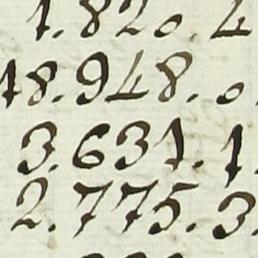 1.820.4
18.948.0.
3.631.1.
2.775.3.